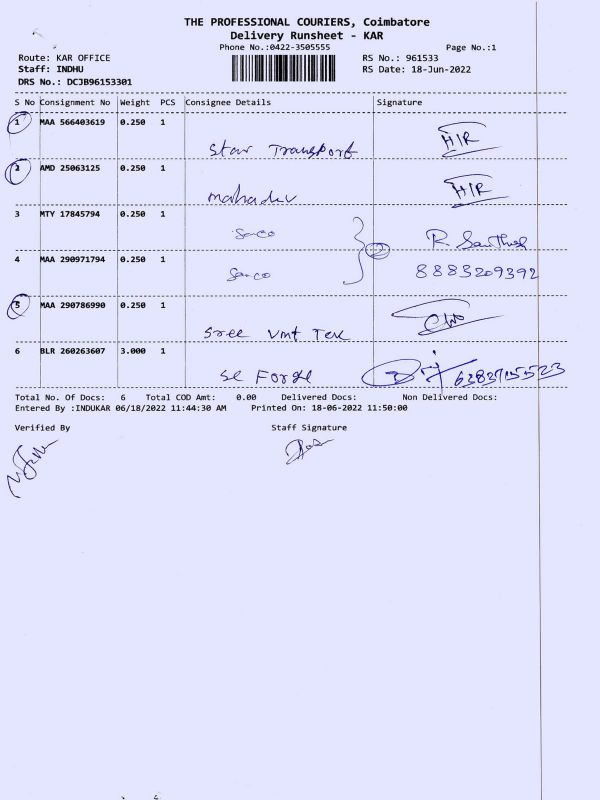 THE PROFESSIONAL COURIERS, Coimbatore
Delivery Runsheet - KAR
Phone No.:0422-3505555 Page No.:1
Route: KAR OFFICE RS No.: 961533
Staff: INDHU RS Date: 18-Jun-2022
DRS No.: DCJB96153301
S No Consignment No Weight PCS Consignee Details Signature
1 MAA 566403619 0.250 1
Star Transport H/R
2 AMD 25063125 0.250 1
mahadev H/R
3 MTY 17845794 0.250 1
Seco R
4 MAA 290971794 0.250 1 2
Seco 8883209392
5 MAA 290786990 0.250 1
Sree Vmt Tex
6 BLR 260263607 3.000 1
SE Forge 6383715523
Total No. Of Docs: 6 Total COD Amt: 0.00 Delivered Docs: Non Delivered Docs:
Entered By :INDUKAR 06/18/2022 11:44:30 AM Printed On: 18-06-2022 11:50:00
Verified By Staff Signature